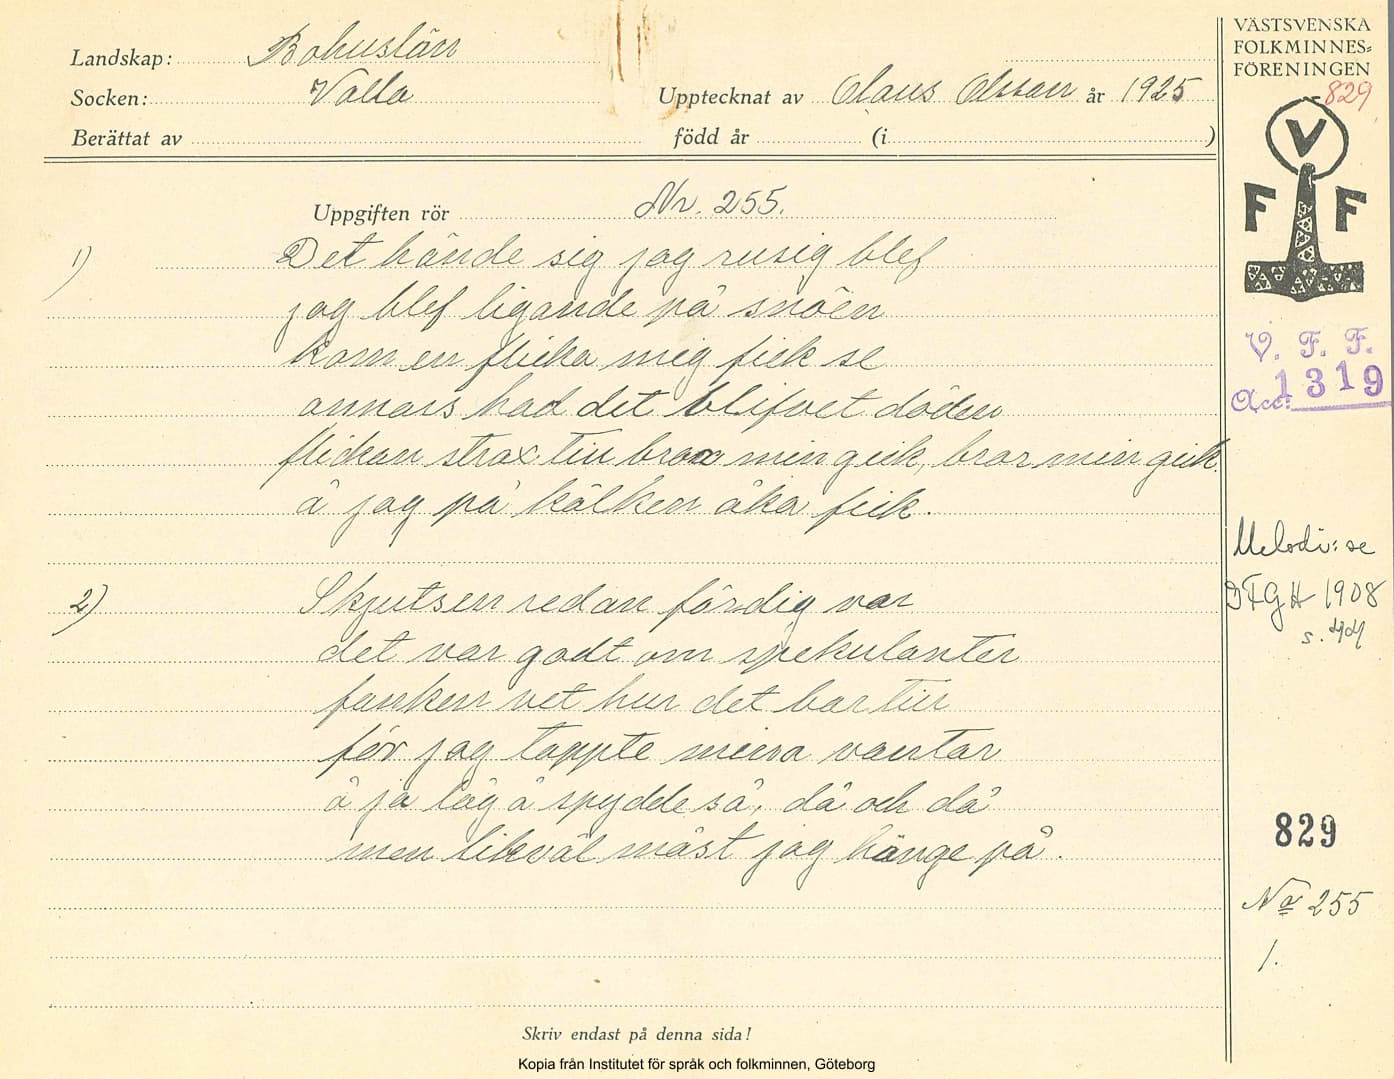 Landskap: Bohuslän
Socken: Valla
Upptecknat av Claus Olsson år 1925
Berättat av
född år (i )
Uppgiften rör Nr. 255.
1) Det hände sig jag rusig blef
jag blef ligande på snöen
kom en flicka mig fick se
annars had det blifvet döden
flickan strax till bror min gick, bror min gick
å jag på kälken åka fick.
2) Skjutsen redan färdig var
det var godt om spekulanter
fanken vet hur det bar till
för jag tappte mina vantar
å ja låg å spydde så, då och då
men likväl måst jag hänge på.
Skriv endast på denna sida!
Kopia från Institutet för språk och folkminnen, Göteborg
VÄSTSVENSKA
FOLKMINNES=
FÖRENINGEN
829
V
F F
V. F. F.
Acc: 1319
Melodi: se
IFGH 1908
s. 44
829
Nr 255
1.